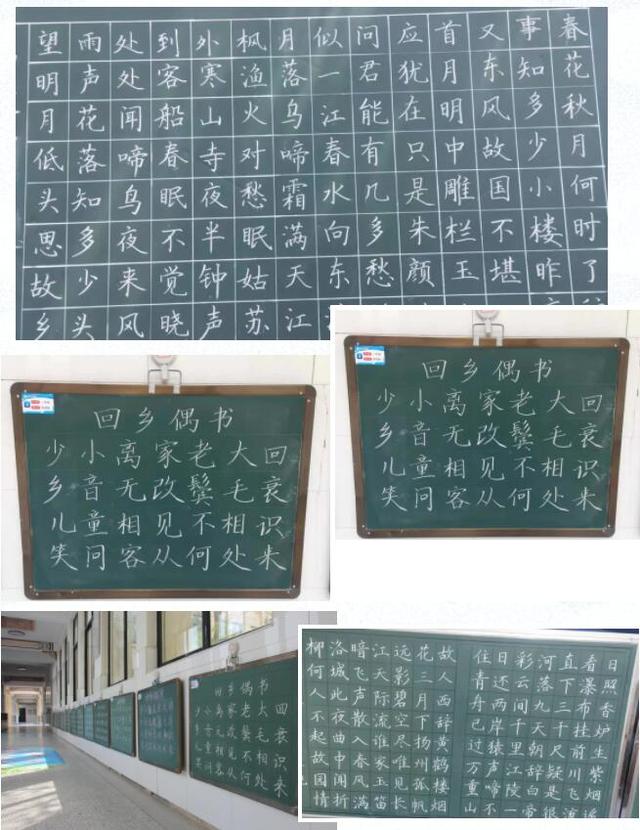 春花秋月何时了
事知多少小楼昨
又东风故国不堪
首月明中雕栏玉
应犹在只是朱颜
问君能有几多愁
似一江春水向东
月落乌啼霜满天江
枫渔火对愁眠姑苏
外寒山寺夜半钟声
到客船春眠不觉晓
处处闻啼鸟夜来风
雨声花落知多少头
望明月低头思故乡
回乡偶书
少小离家老大回
乡音无改鬓毛衰
儿童相见不相识
笑问客从何处来
回乡偶书
少小离家老大回
乡音无改鬓毛衰
儿童相见不相识
笑问客从何处来
回乡偶书
少小离家老大回
乡音无改鬓毛衰
儿童相见不相识
笑问客从何处来
日照香炉生紫烟遥
看瀑布挂前川飞流
直下三千尺疑是银
河落九天朝辞白帝
彩云间千里江陵一
日还两岸猿声啼不
住青舟已过万重山
故人西辞黄鹤楼烟
花三月下扬州孤帆
远影碧空尽唯见长
江天际流谁家玉笛
暗飞声散入春风满
洛城此夜曲中闻折
柳何人不起故园情